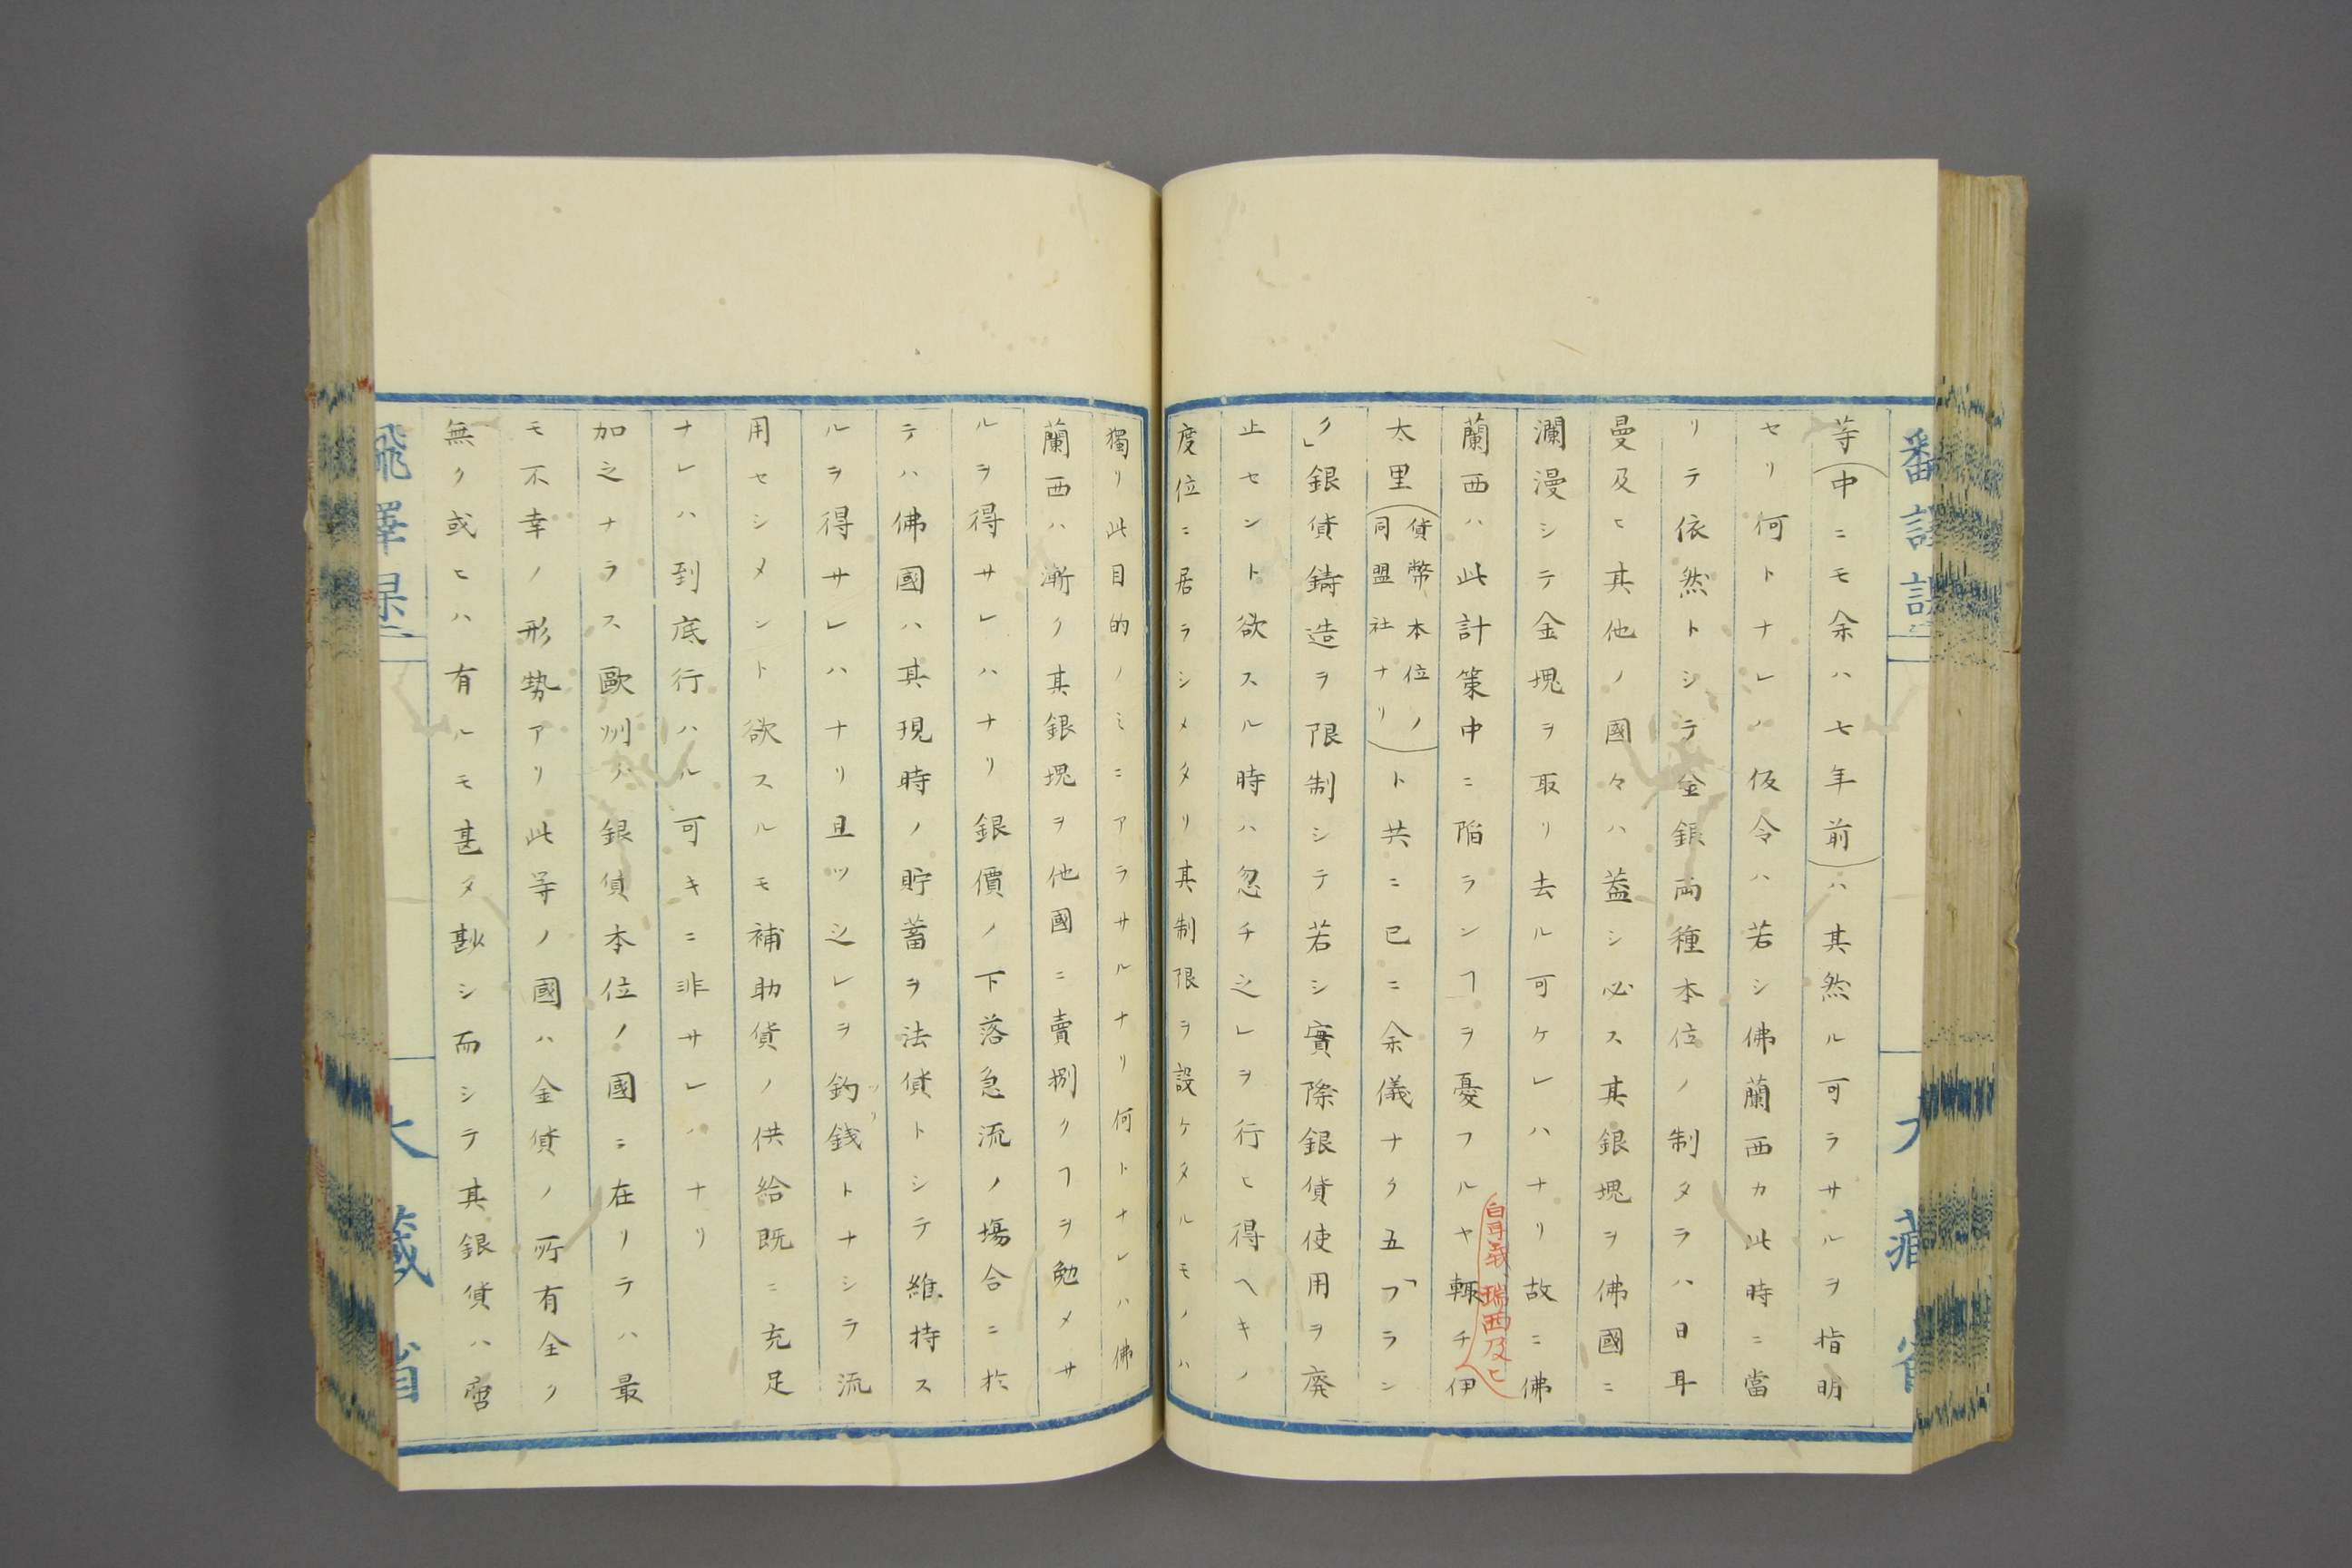 等(中ニモ余ハ七年前)ハ其然ル可ラサルヲ指明
セリ何トナレハ仮令ハ若シ佛蘭西カ此時ニ當
リテ依然トシテ金銀両種本位ノ制タラハ日耳
曼及ヒ其他ノ國々ハ蓋シ必ス其銀塊ヲ佛國ニ
瀾漫シテ金塊ヲ取リ去ル可ケレハナリ故ニ佛
蘭西ハ此計策中ニ陥ランヿヲ憂フルヤ輙チ伊
白耳義、瑞西及ヒ
太里(貨幣本位ノ同盟社ナリ)ト共ニ已ニ余儀ナク五「フラン
ク」銀貨鋳造ヲ限制シテ若シ實際銀貨使用ヲ廃
止セント欲スル時ハ忽チ之レヲ行ヒ得ヘキノ
度位ニ居ラシメタリ其制限ヲ設ケタルモノハ
獨リ此目的ノミニアラサルナリ何トナレハ佛
蘭西ハ漸ク其銀塊ヲ他國ニ賣捌クヿヲ勉メサ
ルヲ得サレハナリ銀價ノ下落急流ノ場合ニ於
テハ佛國ハ其現時ノ貯蓄ヲ法貨トシテ維持ス
ルヲ得サレハナリ且ツ之レヲ釣錢トナシテ流
ツリ
用セシメント欲スルモ補助貨ノ供給既ニ充足
ナレハ到底行ハル可キニ非サレハナリ
加之ナラス歐洲ノ銀貨本位ノ國ニ在リテハ最
モ不幸ノ形勢アリ此等ノ國ハ金貨ノ所有全ク
無ク或ヒハ有ルモ甚タ尠シ而シテ其銀貨ハ啻
大藏省
大藏省